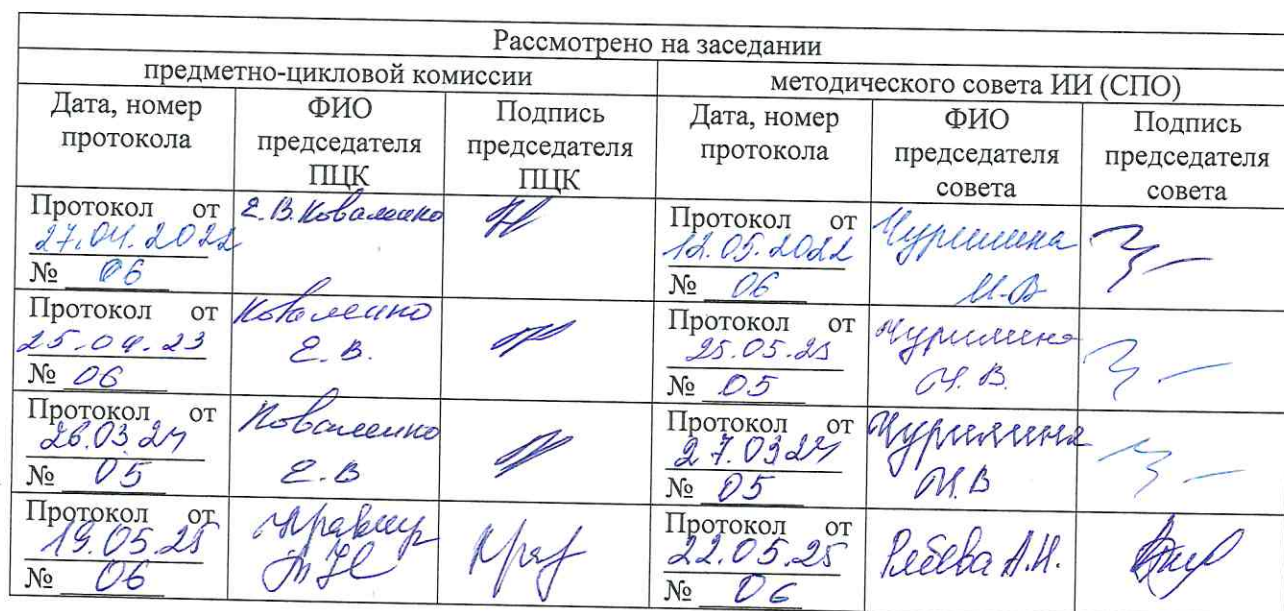 Рассмотрено на заседании
предметно-цикловой комиссии
методического совета ИИ (СПО)
Дата, номер протокола
ФИО председателя ПЦК
Подпись председателя ПЦК
Дата, номер протокола
ФИО председателя совета
Подпись председателя совета
Протокол от
27.04.2022
№ 06
Е.В. Коваленко
Протокол от
12.05.2022
№ 06
Чурилина
И.В.
Протокол от
25.04.23
№ 06
Коваленко
Е.В.
Протокол от
25.05.23
№ 05
Чурилина
И.В.
Протокол от
26.03.24
№ 05
Коваленко
Е.В
Протокол от
27.03.24
№ 05
Чурилина
И.В
Протокол от
19.05.25
№ 06
Протокол от
22.05.25
№ 06
А.Н.